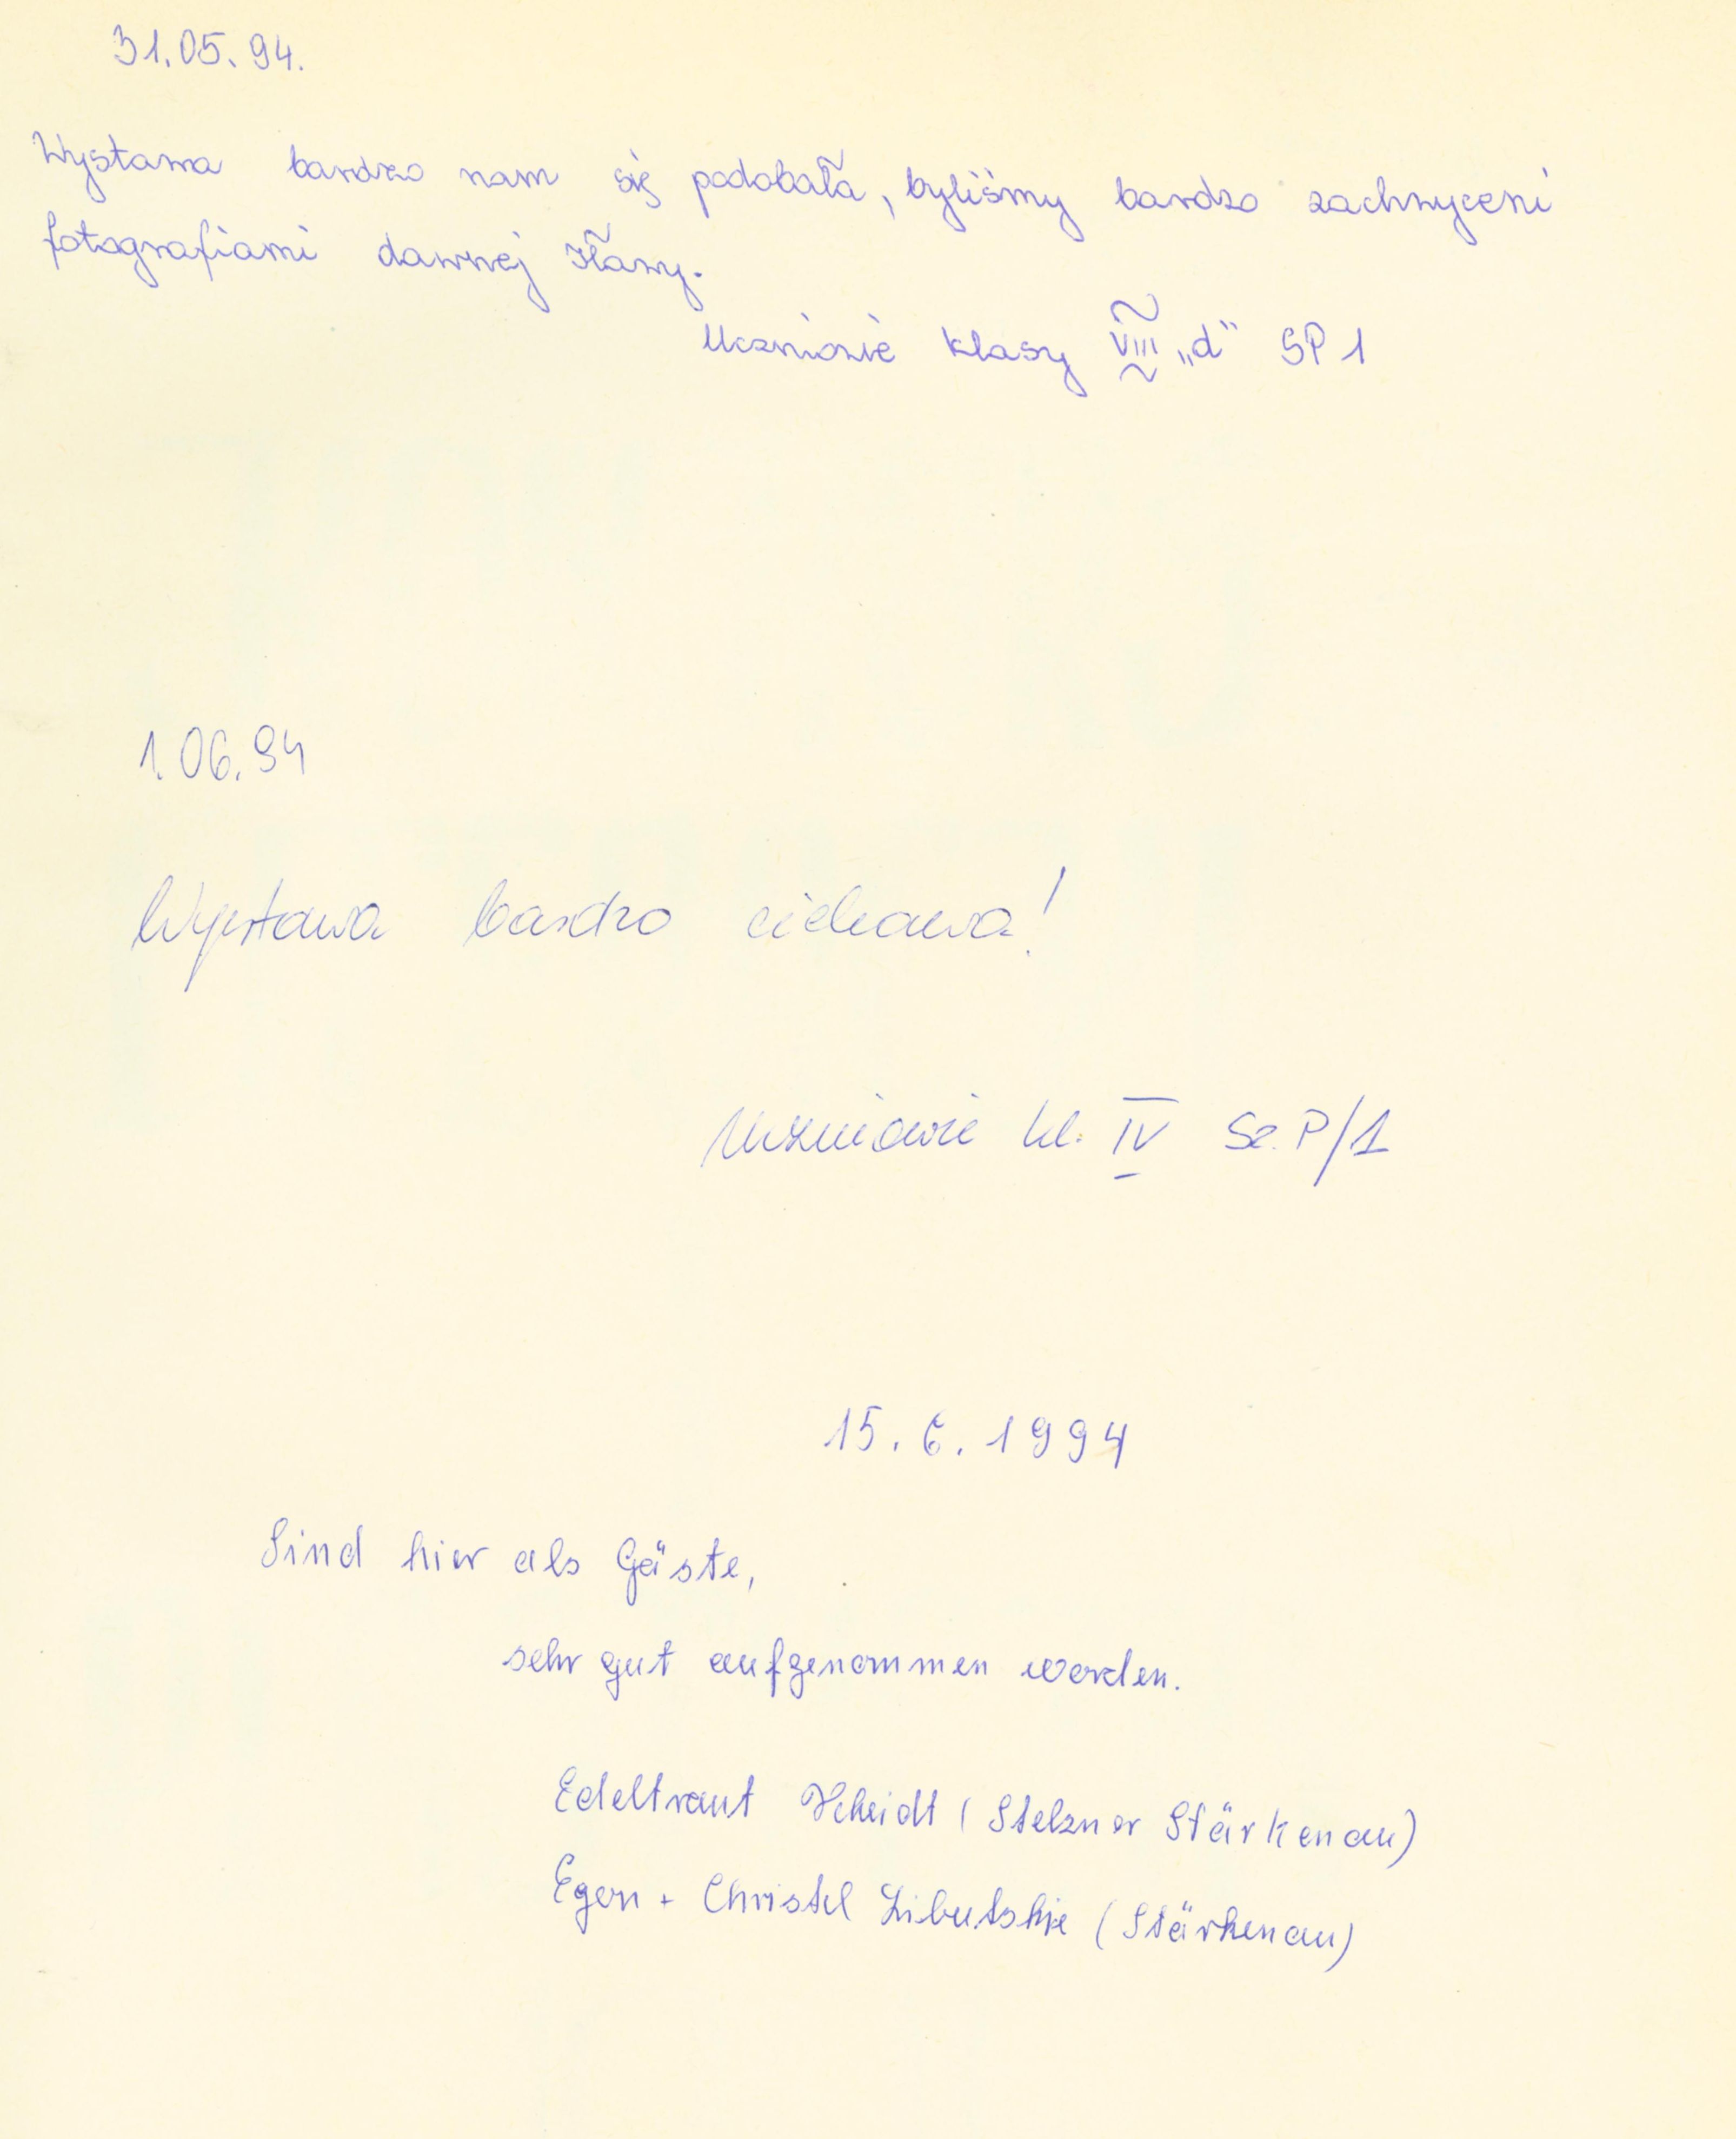 31.05.94.
Wystawa bardzo nam się podobała, byliśmy bardzo zachwyceni
fotografiami dawnej Iławy.
Uczniowie klasy VIII „d" SP 1
1.06.94
Wystawa bardzo ciekawa!
Uczniowie kl. IV Sz. P/1
15.6.1994
Sind hier als Gäste,
sehr gut aufgenommen worden.
Edeltraut Scheidt (Stelzner Stärkenau)
Egon + Christel Libutzkie (Stärkenau)